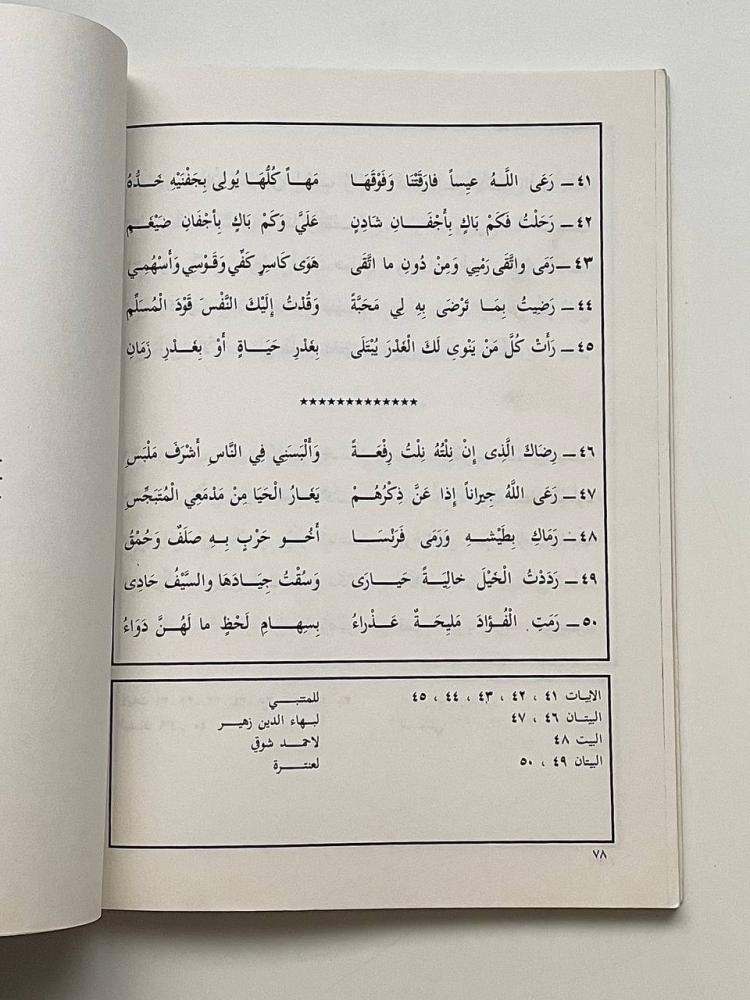 ٤١ــ رَعَى اللَّـهُ عِيساً فارَقَتْنا وَفَوْقَهَا مَهـاً كُلُّهَـا يُولى بِجَفْنَيْهِ خَـدُّهُ
٤٢ــ رَحَلْتُ فَكَمْ بَاكٍ بِأَجْفَـــانِ شَادِنٍ عَلَيَّ وَكَمْ بَاكٍ بِأجْفَانِ ضَيْغَـمِ
٤٣ــ رَمَى واتَّقَى رَمْيِي وَمِنْ دُونِ ما اتَّقَى هَوَى كَاسِرٍ كَفِّي وَقَـوْسِي وَأَسْهُمِـي
٤٤ــ رَضِيتُ بِمَـا تَرْضَى بِهِ لِي مَحَبَّةً وَقُدْتُ إِلَيْكَ النَّفْسَ قَوْدَ الْمُسَلِّمِ
٤٥ــ رَأَتْ كُلَّ مَنْ يَنْوِى لَكَ الْغَدْرَ يُبْتَلَى بِغَدْرِ حَيَــاةٍ أَوْ بِغَــدْرِ زَمَانِ
*************
٤٦ــ رِضَاكَ الَّذِى إِنْ نِلْتُهُ نِلْتُ رِفْعَـــةً وَأَلْبَسَنِي فِي النَّاسِ أَشْرَفَ مَلْبَسِ
٤٧ــ رَعَى اللَّهُ جِيراناً إِذا عَنَّ ذِكْرُهُـمْ يَغَـارُ الْحَيَا مِنْ مَدْمَعِي الْمُتَبَجِّسِ
٤٨ــ رَمَاكِ بِطَيْشــهِ وَرَمَى فَرَنْسَـــا أَخُــو حَرْبٍ بِـهِ صَلَفٌ وَحُمْقُ
٤٩ــ رَدَدْتُ الْخَيْلَ خالِيَــةً حَيــارَى وَسُقْتُ جِيَـادَهَا والسَّيْفُ حَادِى
٥٠ــ رَمَتِ الْفُؤَادَ مَلِيحَـةٌ عَــذْراءُ بِسِهـامِ لَحْظٍ ما لَهُـنَّ دَوَاءُ
الابيات ٤١ ، ٤٢ ، ٤٣ ، ٤٤ ، ٤٥ للمتنبـــي
البيتــان ٤٦ ، ٤٧ لبهاء الدين زهيـر
البيت ٤٨ لاحمـد شوقي
البيتان ٤٩ ، ٥٠ لعنتـــرة
٧٨